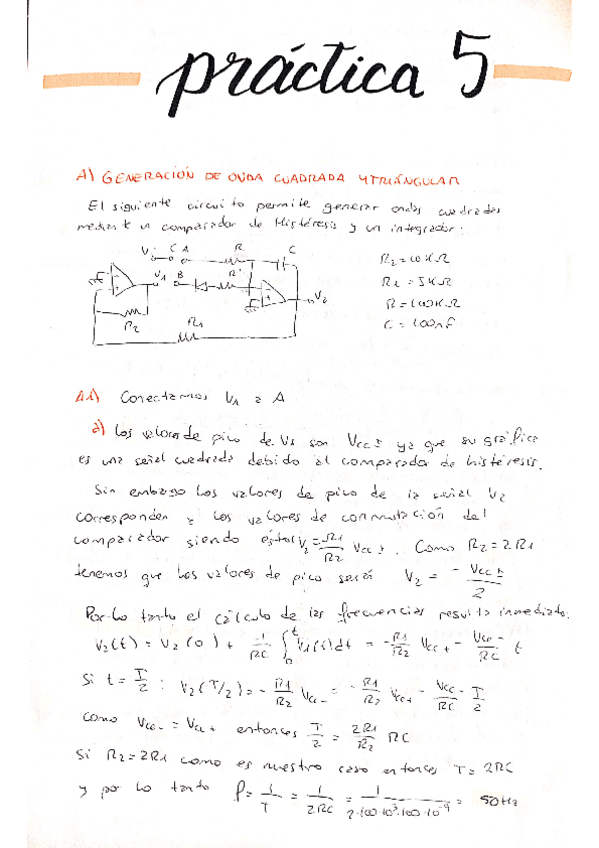 práctica 5
A) GENERACIÓN DE ONDA CUADRADA Y TRIÁNGULAR
El siguiente circuito permite generar ondas cuadradas
mediante un comparador de Histéresis y un integrador:
V C A R C
R2 = 10KΩ
V1 B R'
R1 = 5KΩ
V2
R = 100KΩ
R2 R1
C = 100nF
A1) Conectamos V1 a A
a) Los valores de pico de V1 son Vcc± ya que su gráfica
es una señal cuadrada debido al comparador de histéresis.
Sin embargo los valores de pico de la señal V2
corresponden a los valores de conmutación del
comparador siendo estos V2 = -R1/R2 Vcc±. Como R2 = 2R1
tenemos que los valores de pico será V2 = -Vcc±/2
Por lo tanto el cálculo de las frecuencias resulta inmediato:
V2(t) = V2(0) + -1/RC ∫0^t V1(t)dt = -R1/R2 Vcc+ - Vcc-/RC t
Si t = T/2 : V2(T/2) = -R1/R2 Vcc- = -R1/R2 Vcc+ - Vcc-/RC T/2
como Vcc- = Vcc+ entonces T/2 = 2R1/R2 RC
Si R2 = 2R1 como es nuestro caso entonces T = 2RC
y por lo tanto f = 1/T = 1/2RC = 1/2·100·10³·100·10⁻⁹ = 50Hz